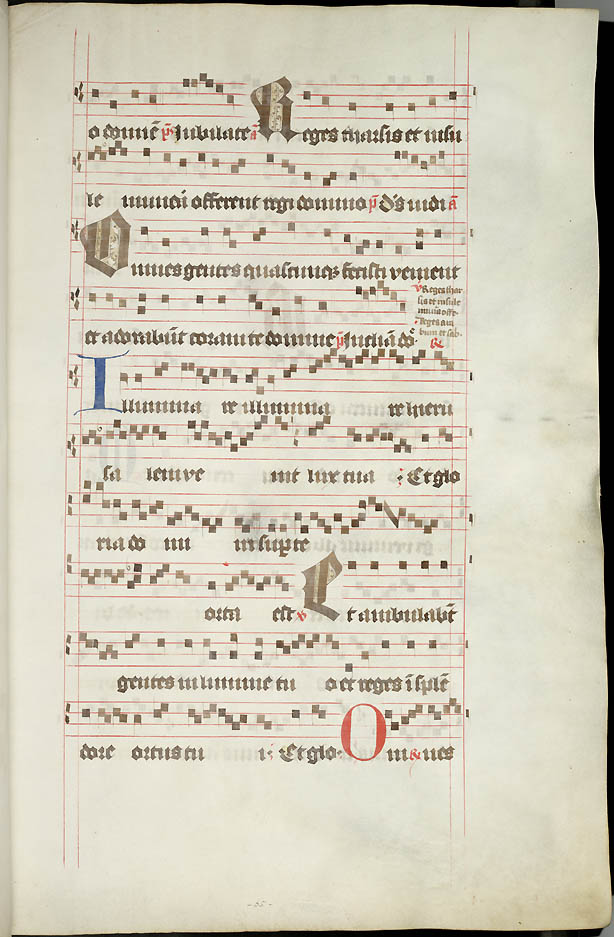 o domīe p̄s Jubilate a̅ Reges tharsis et insu
le munera offerent regi domino p̄ d̄s iudi a̅
Omnes gentes quascumq; fecisti venient
et adorabūt coram te domine p̄ Inclīa dō
v Reges thar
sis et insule
munā offe.
Reges ara
bum et sab.
Illumina re illumina re iheru
sa lem ve nit lux tua : Et glo
ria do mi ni super te
orta est v Et ambulabūt
gentes in lumine tu o et reges ī splē
dore ortus tu i. Et glo. Omnes
-55-